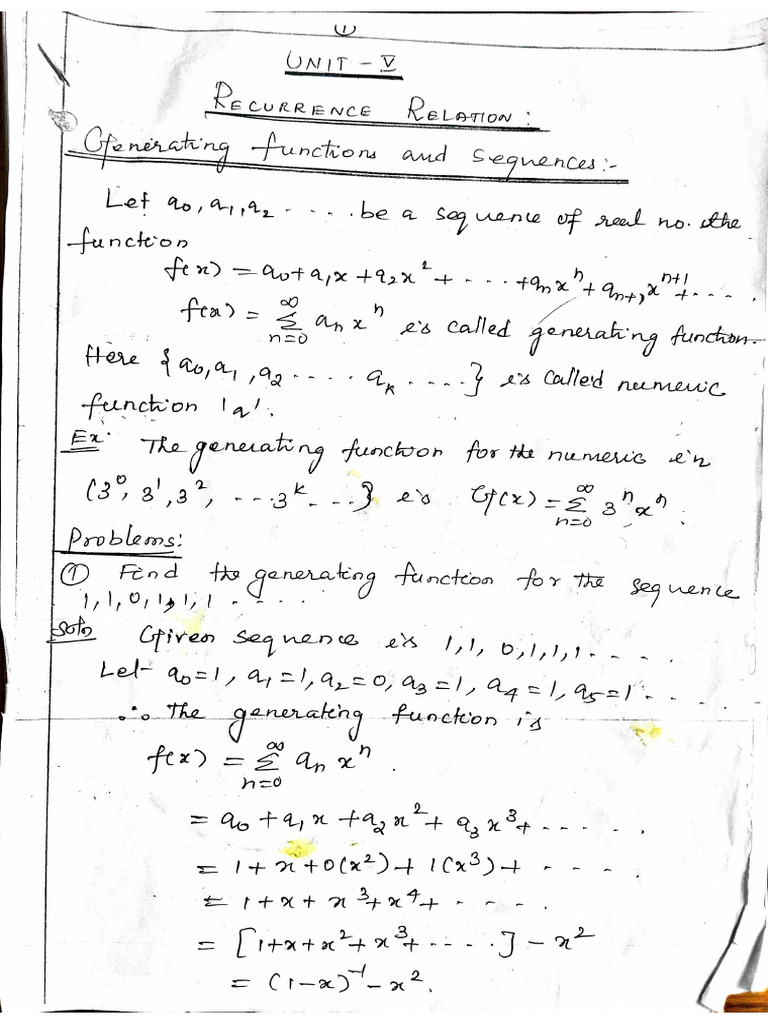 1
UNIT - V
RECURRENCE RELATION:
Generating functions and sequences:-
Let a₀, a₁, a₂ - . . . . be a sequence of real no. the
function
f(x) = a₀ + a₁x + a₂x² + - . . . + aₙxⁿ + aₙ₊₁xⁿ⁺¹ + - . . .
f(x) = ∞Σn=0 aₙxⁿ is called generating function.
Here {a₀, a₁, a₂ . . . . . aₖ . . . . .} is called numeric
function 'a'.
Ex: The generating function for the numeric in
(3⁰, 3¹, 3², - ...3ᵏ. ...} is G(x) = ∞Σn=0 3ⁿxⁿ.
Problems:
① Find the generating function for the sequence
1, 1, 0, 1, 1, 1, 1 . . . . .
Soln Given sequence is 1, 1, 0, 1, 1, 1 . . . . .
Let a₀=1, a₁=1, a₂=0, a₃=1, a₄=1, a₅=1 . . . . .
∴ The generating function is
f(x) = ∞Σn=0 aₙ xⁿ.
= a₀ + a₁x + a₂x² + a₃x³ + . . . . . .
= 1 + x + 0(x²) + 1(x³) + - - - - .
= 1 + x + x³ + x⁴ + - - - .
= [1 + x + x² + x³ + - - - .] - x²
= (1-x)⁻¹ - x².